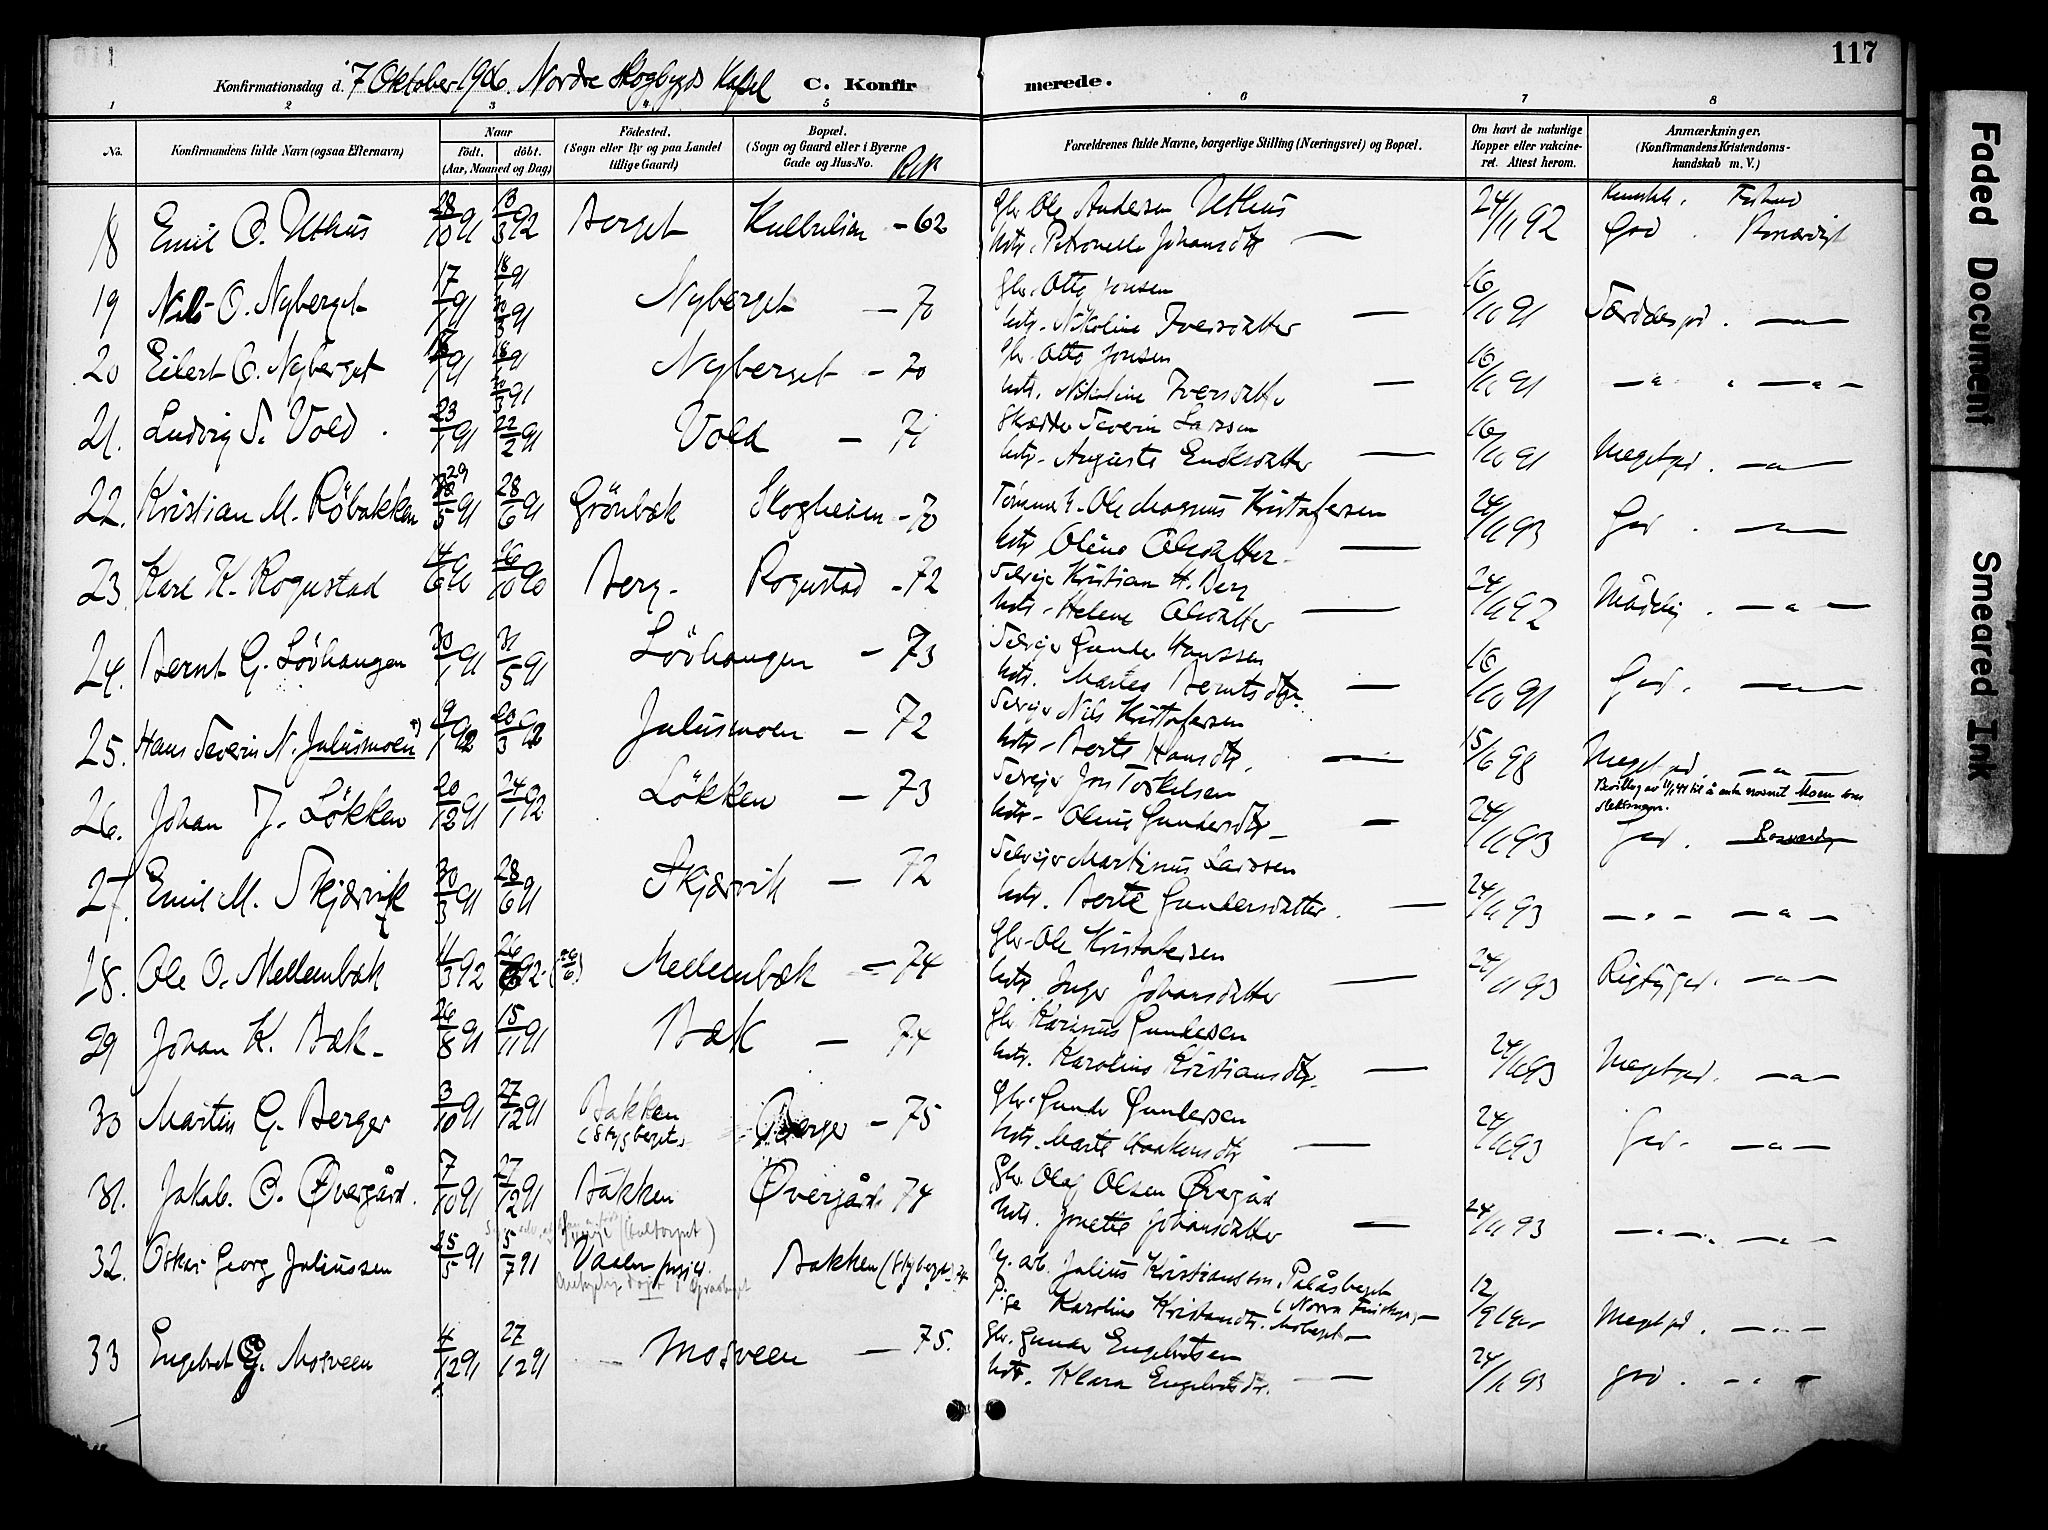 117
Konfirmationsdag d. 7 Oktober 1906. Nordre Skogbygds Kapel C. Konfirmerede.
1 2 3 4 5 6 7 8
No. Konfirmandens fulde Navn (ogsaa Efternavn) Naar födt. döbt. (Aar, Maaned og Dag) Födested. (Sogn eller By og paa Landet tillige Gaard) Bopæl. (Sogn og Gaard eller i Byerne Gade og Hus-No. Forældrenes fulde Navne, borgerlige Stilling (Næringsvei) og Bopæl. Om havt de naturlige Kopper eller vakcineret. Attest herom. Anmærkninger. (Konfirmandens Kristendomskundskab m. V.)
18 Emil O. Uthus 28/10 91 13/3 92 Berget Kulbulien - 62 Gbr. Ole Andersen Uthus 24/11 92 Kundsk. Forhold
Hstr. Petronelle Johansdtr — God.
19 Nils O. Nyberget 17/1 91 18/1 91 Nyberget — 70 Gbr. Otto Jonsen 16/10 91
Hstr. Nikoline Iversdatter —
20 Eilert O. Nyberget 17/1 91 18/1 91 Nyberget - 70 Gbr. Otto Jonsen 16/10 91 — " —
Hstr. Nikoline Iversdatter —
21. Ludvig S. Vold. 23/1 91 22/2 91 Vold — 71 Skrædder Severin Larsen 16/10 91
Hstr. Auguste Eriksdatter — Meget god. — " —
22. Kristian M. Röbakken 29/5 91 28/6 91 Grönbæk Skogheim - 70 Tömmerh. Ole Magnus Kristofersen 24/11 93 God. — " —
Hstr. Oline Olsdatter. —
23 Karl K. Rogustad 4/6 90 26/10 90 Berg. Rogustad - 72 Selveje Kristian H. Berg 24/11 92 Mådelig. — " —
Hstr. Helene Olsdatter —
24. Bernt G. Lövhaugen 30/1 91 31/5 91 Lövhaugen — 73 Selvejer Gunder Hanssen 16/10 91 God. — " —
Hstr. Martea Berntsdtr. —
25. Hans Severin N. Juliusmoen 9/1 92 20/3 92 Juliusmoen — 72 Selvejer Nils Kristofersen 15/6 98 Meget god — " —
Hstr. Berte Hansdtr. —
Bevilling av til å anta navnet Moen som slektsnavn.
26. Johan J. Lökken 20/12 91 24/1 92 Lökken — 73 Selvejer Jon Torkelsen 24/11 93 God.
Hstr. Oline Gundersdtr —
27. Emil M. Skjærvik 30/3 91 28/6 91 Skjærvik — 72 Selvejer Martinus Larssen 24/11 93 — " — — " —
Hstr. Berte Gundersdatter. —
28. Ole O. Mellembæk 11/3 92 26/6 92. (26/6) Mellembæk — 74 Gbr. Ole Kristofersen 24/11 93 — " —
Hstr. Inger Johansdatter —
29 Johan K. Bæk 26/8 91 15/11 91 Bæk — 74 Gbr Karinus Gundersen 24/11 93 Meget god. — " —
Hstr. Karoline Kristiansdtr. —
30 Martin G. Berger 3/10 91 27/12 91 Bakken (Stygberget) Berger — 75 Gbr. Gunder Gundersen 24/11 93 God. — " —
Hstr. Marte Haakensdtr —
31. Jakob. O. Övergård. 7/10 91 27/12 91 Bakken Övergård 74 Gbr. Olaf Olsen Övergård 24/11 93 — " — — " —
Hstr. Jonette Johansdatter —
32. Oskar Georg Juliussen 25/5 91 5/7 91 Vaaler Bakken (Stygberget) Ug. arb. Julius Kristianssen, 12/9 Meget god. — " —
Pige Karoline Kristiansdtr. —
33 Engebret G. Mosveen 4/12 91 27/12 91 Mosveen — 75. Gbr. Gunder Engebretsen 24/11 93 god. — " —
Hstr. Klara Engebretsdtr. —
Faded Document
Smeared Ink